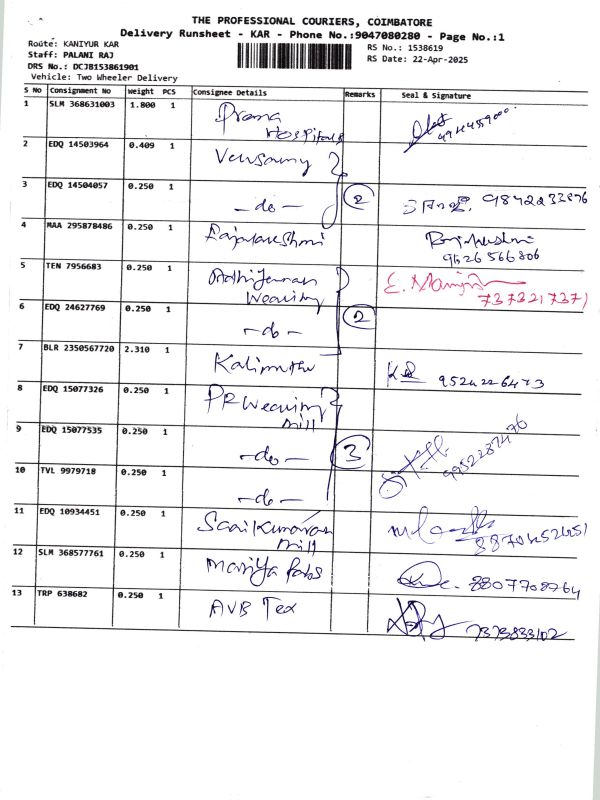 THE PROFESSIONAL COURIERS, COIMBATORE
Delivery Runsheet - KAR - Phone No.:9047080280 - Page No.:1
Route: KANIYUR KAR
RS No.: 1538619
Staff: PALANI RAJ
RS Date: 22-Apr-2025
DRS No.: DCJB153861901
Vehicle: Two Wheeler Delivery
S No Consignment No Weight PCS Consignee Details Remarks Seal & Signature
1 SLM 368631003 1.800 1
Hospitals
2 EDQ 14503964 0.409 1
3 EDQ 14504057 0.250 1 -do- 2 9842233876
4 MAA 295878486 0.250 1 Rajalakshmi Rajalakshmi
9526566806
5 TEN 7956683 0.250 1
Weaving
6 EDQ 24627769 0.250 1 -do- 2
7 BLR 2350567720 2.310 1 Kalimuthu 9524226473
8 EDQ 15077326 0.250 1 PR Weaving
Mill
9 EDQ 15077535 0.250 1 -do- 3 9952287476
10 TVL 9979718 0.250 1 -do-
11 EDQ 10934451 0.250 1 Saai Kumaran
Mill
12 SLM 368577761 0.250 1 Mariya Fabs 8807708964
13 TRP 638682 0.250 1 AVB Tex 7373833102